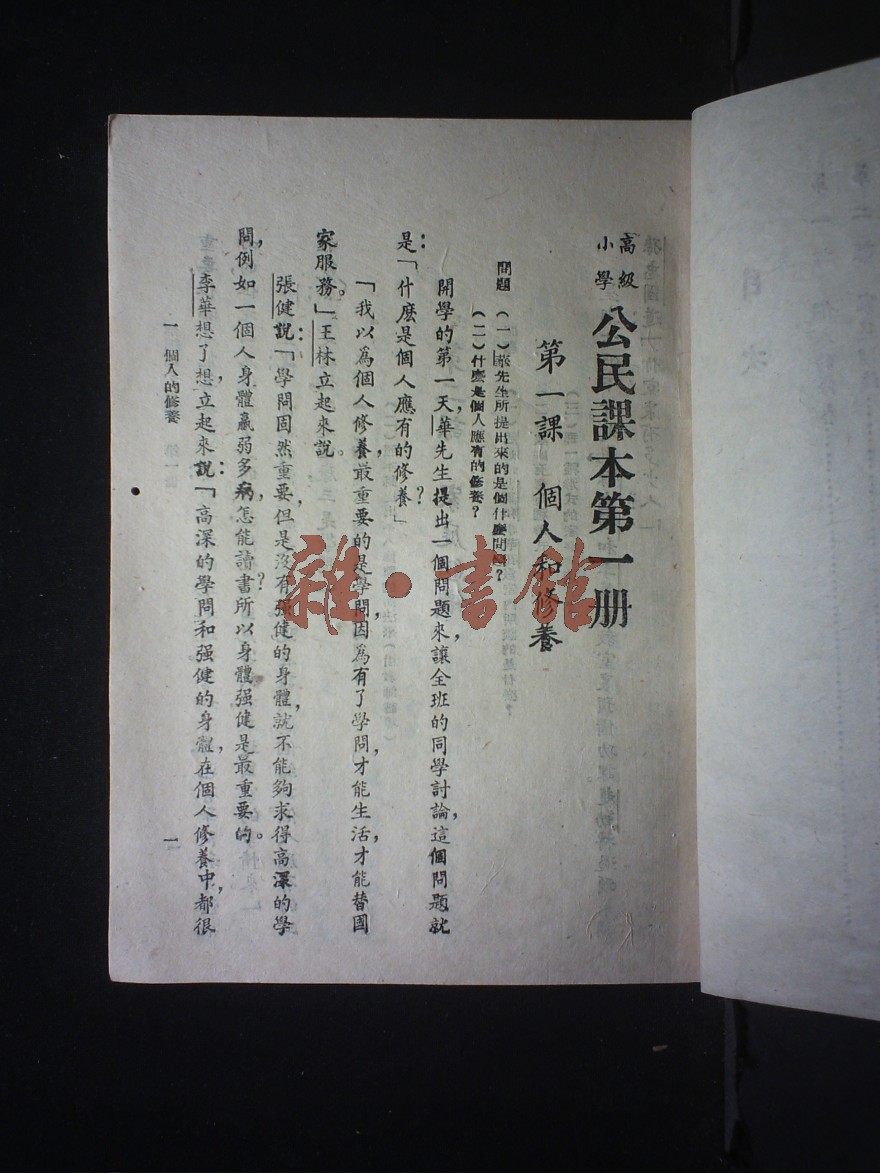 高級小學 公民課本第一册
第一課 個人和修養
問題 (一)華先生所提出來的是個什麼問題?
(二)什麼是個人應有的修養?
開學的第一天,華先生提出一個問題來,讓全班的同學討論,這個問題就
是:「什麼是個人應有的修養?」
「我以爲個人修養,最重要的是學問,因爲有了學問,才能生活,才能替國
家服務。」王林立起來說。
張健說:「學問固然重要,但是沒有强健的身體,就不能夠求得高深的學
問,例如一個人身體羸弱多病,怎能讀書?所以身體强健是最重要的。
李華想了想,立起來說:「高深的學問和强健的身體,在個人修養中,都很
一 個人的修養
一
雜·書館